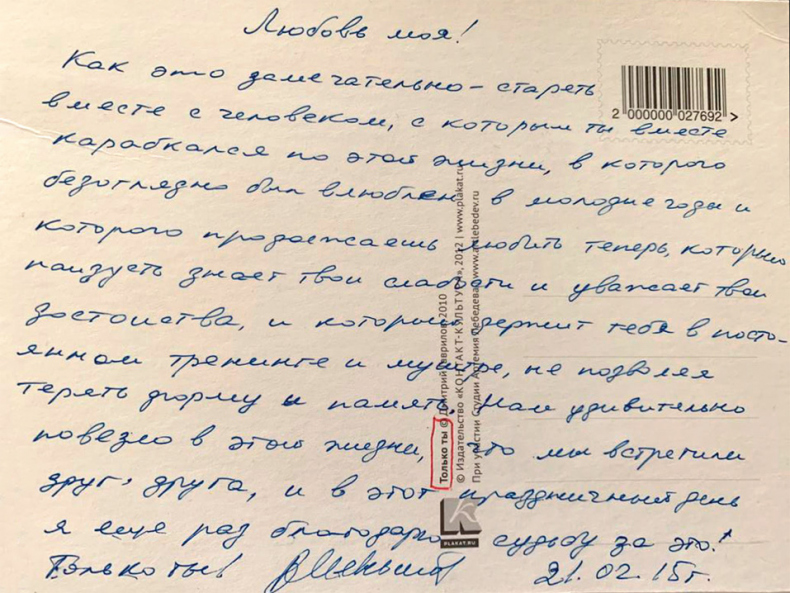 Любовь моя!
Как это замечательно – стареть
вместе с человеком, с которым ты вместе
карабкался по этой жизни, в которого
безоглядно был влюблен в молодые годы и
которого продолжаешь любить теперь, который
наизусть знает твои слабости и уважает твои
достоинства, и который держит тебя в посто-
янном тренинге и муштре, не позволяя
терять форму и память. Нам удивительно
повезло в этой жизни, что мы встретили
друг друга, и в этот праздничный день
я еще раз благодарю судьбу за это!
Только ты!
21.02.15г.
2 000000 027692 >
Только ты © Дмитрий Гаврилов 2010
© Издательство «КОНТАКТ-КУЛЬТУРА», 2012 | www.plakat.ru
При участии Студии Артемия Лебедева www.artlebedev.ru
PLAKAT.RU